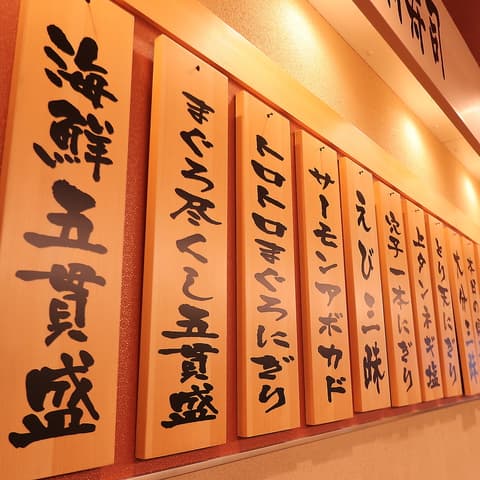 海鮮五貫盛
まぐろ尽くし五貫盛
トロトロまぐろにぎり
サーモンアボカド
えび三昧
穴子一本にぎり
上タンネギ塩
とり天にぎり